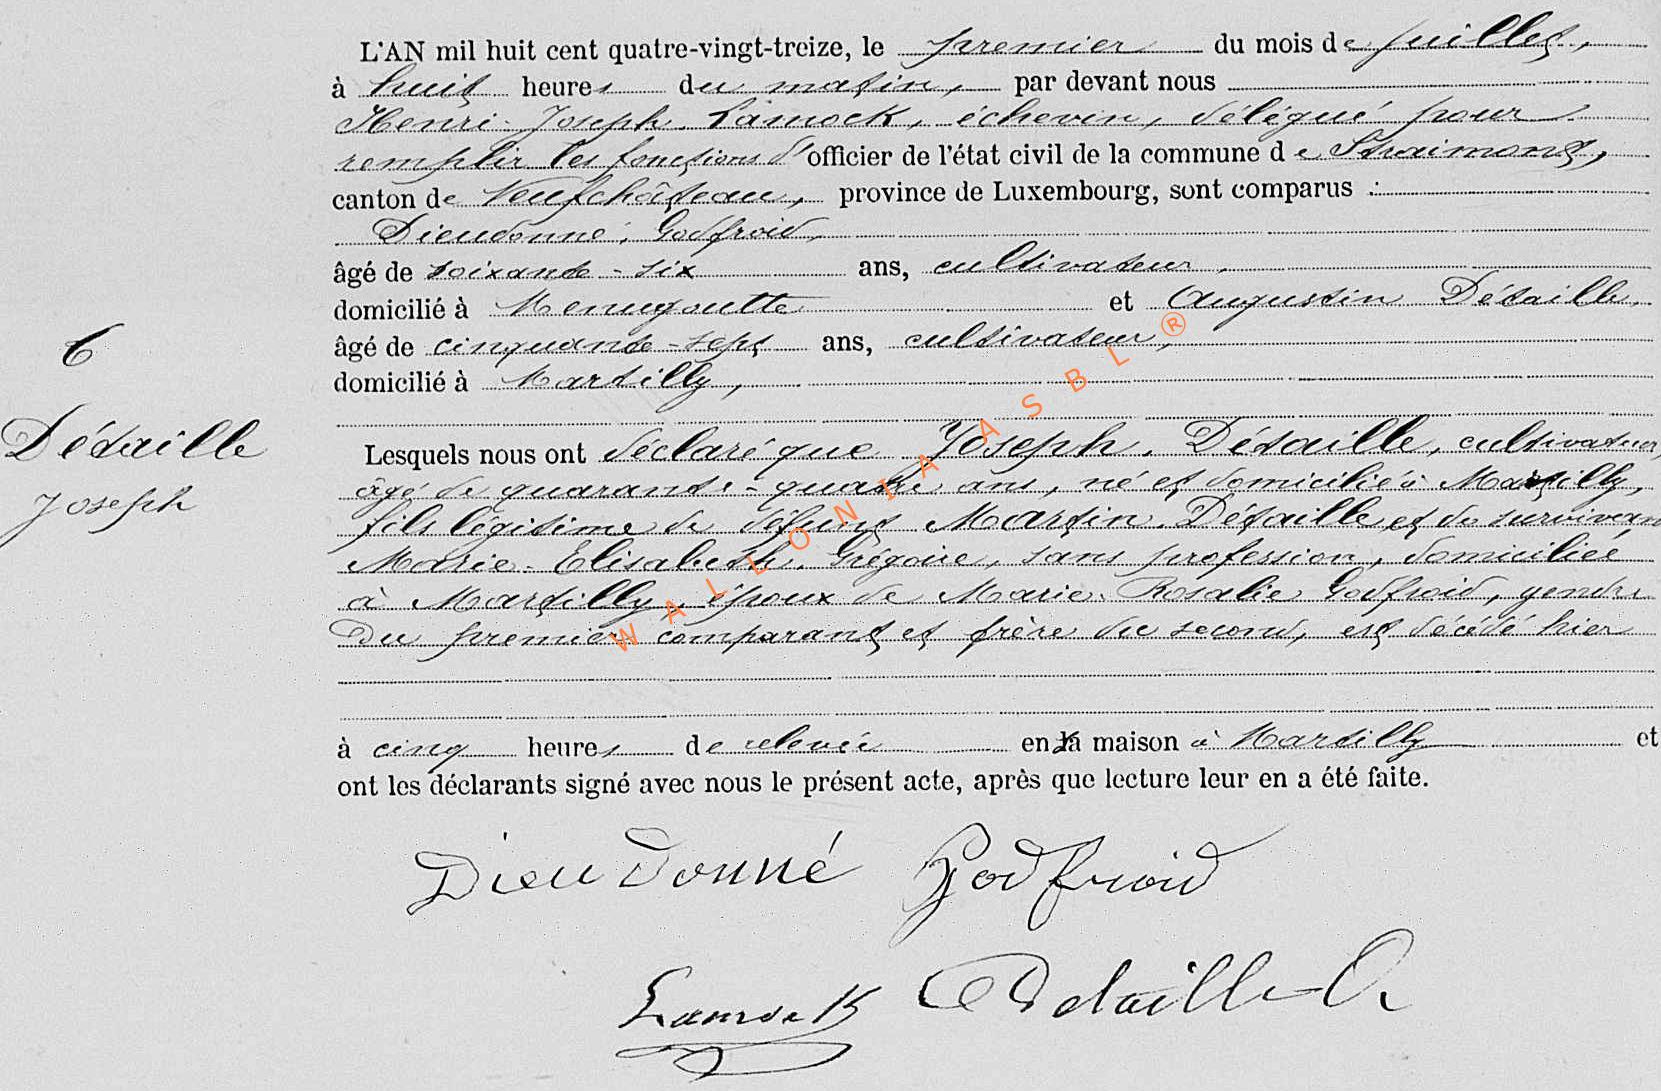 L'AN mil huit cent quatre-vingt-treize, le premier du mois de juillet,
à huit heures du matin, par devant nous
Henri-Joseph Lamock, échevin, délégué pour
remplir les fonctions d'officier de l'état civil de la commune de Straimont,
canton de Neufchâteau, province de Luxembourg, sont comparus :
Dieudonné Godfroid,
âgé de soixante-six ans, cultivateur,
domicilié à Menugoutte et Augustin Détaille,
âgé de cinquante-sept ans, cultivateur,
domicilié à Martilly,
6
Détaille
Joseph
Lesquels nous ont déclaré que Joseph Détaille, cultivateur,
âgé de quarante-quatre ans, né et domicilié à Martilly,
fils légitime de défunt Martin Détaille et de survivant
Marie-Elisabeth Grégoire, sans profession, domiciliée
à Martilly, époux de Marie-Rosalie Godfroid, gendre
du premier comparant et frère du second, est décédé hier
à cinq heures de relevée en sa maison à Martilly et
ont les déclarants signé avec nous le présent acte, après que lecture leur en a été faite.
Dieudonné Godfroid
Lamock Detaille A
WALLONIA ASBL ®